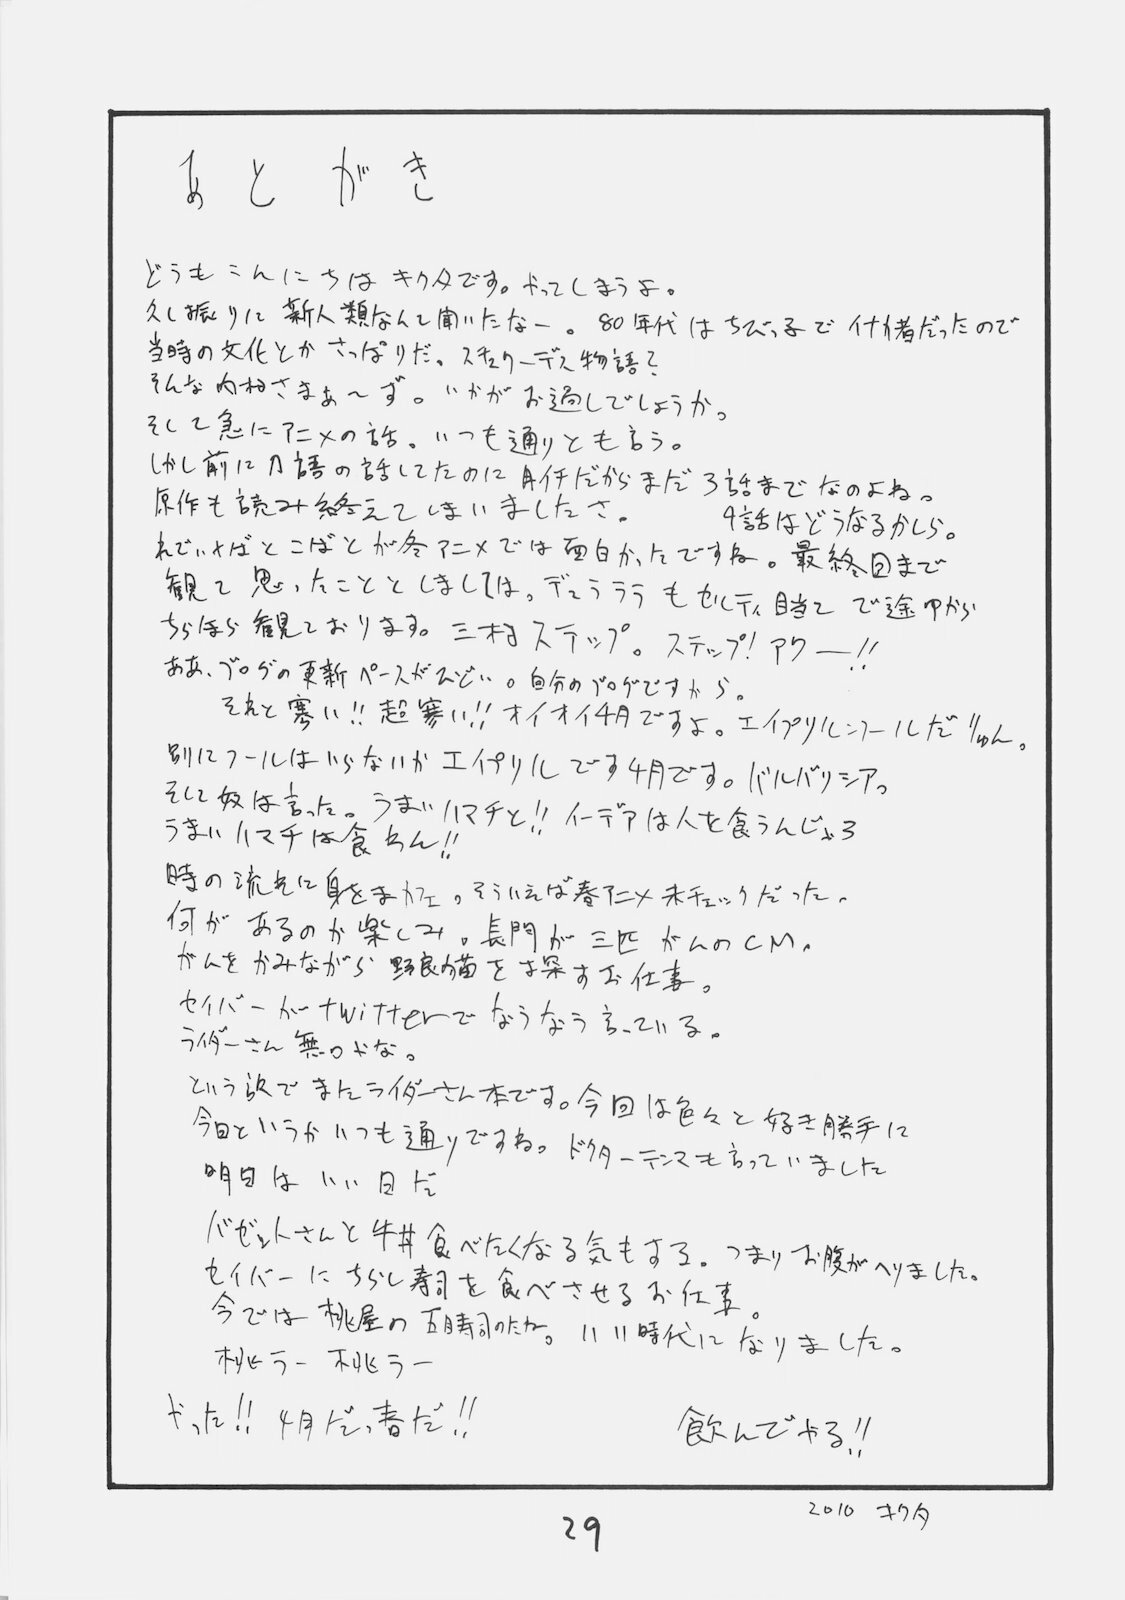 あとがき
どうもこんにちはキクタです。やってしまうよ。
久し振りに新人類なんて聞いたなー。80年代はちびっ子でイナカ者だったので
当時の文化とかさっぱりだ。スチュワーデス物語?
そんな内村さまぁ～ず。いかがお過しでしょうか。
そして急にアニメの話。いつも通りとも言う。
しかし前に刀語の話してたのに月イチだからまだ3話までなのよね。
原作も読み終えてしまいましたさ。
4話はどうなるかしら。
れでぃ×ばととこばとが冬アニメでは面白かったですね。最終回まで
観て思ったこととしましては。デュラララもセルティ目当てで途中から
ちらほら観ております。三村ステップ。ステップ!アウー!!
ああ、ブログの更新ペースがひどい。自分のブログですから。
それと寒い!!超寒い!!オイオイ4月ですよ。エイプリルフールだりゅん。
別にフールはいらないがエイプリルです4月です。バルバリシア。
そして奴は言った。うまいハマチと!!イーデアは人を食うんじゃろ
うまいハマチは食わん!!
時の流れに身をまカフェ。そういえば春アニメ未チェックだった。
何があるのか楽しみ。長門が三匹がんのCM。
がんをかみながら野良猫を探すお仕事。
セイバーがtwitterでなうなう言っている。
ライダーさん無口やな。
という訳でまたライダーさん本です。今回は色々と好き勝手に
今日というかいつも通りですね。ドクターテンマも言っていました
明日はいい日だ
バゼットさんと牛丼食べたくなる気もする。つまりお腹がへりました。
セイバーにちらし寿司を食べさせるお仕事。
今では桃屋の五目寿司のたね。いい時代になりました。
桃ラー 桃ラー
やった!!4月だっ春だ!!
飲んでやる!!
2010 キクタ
29